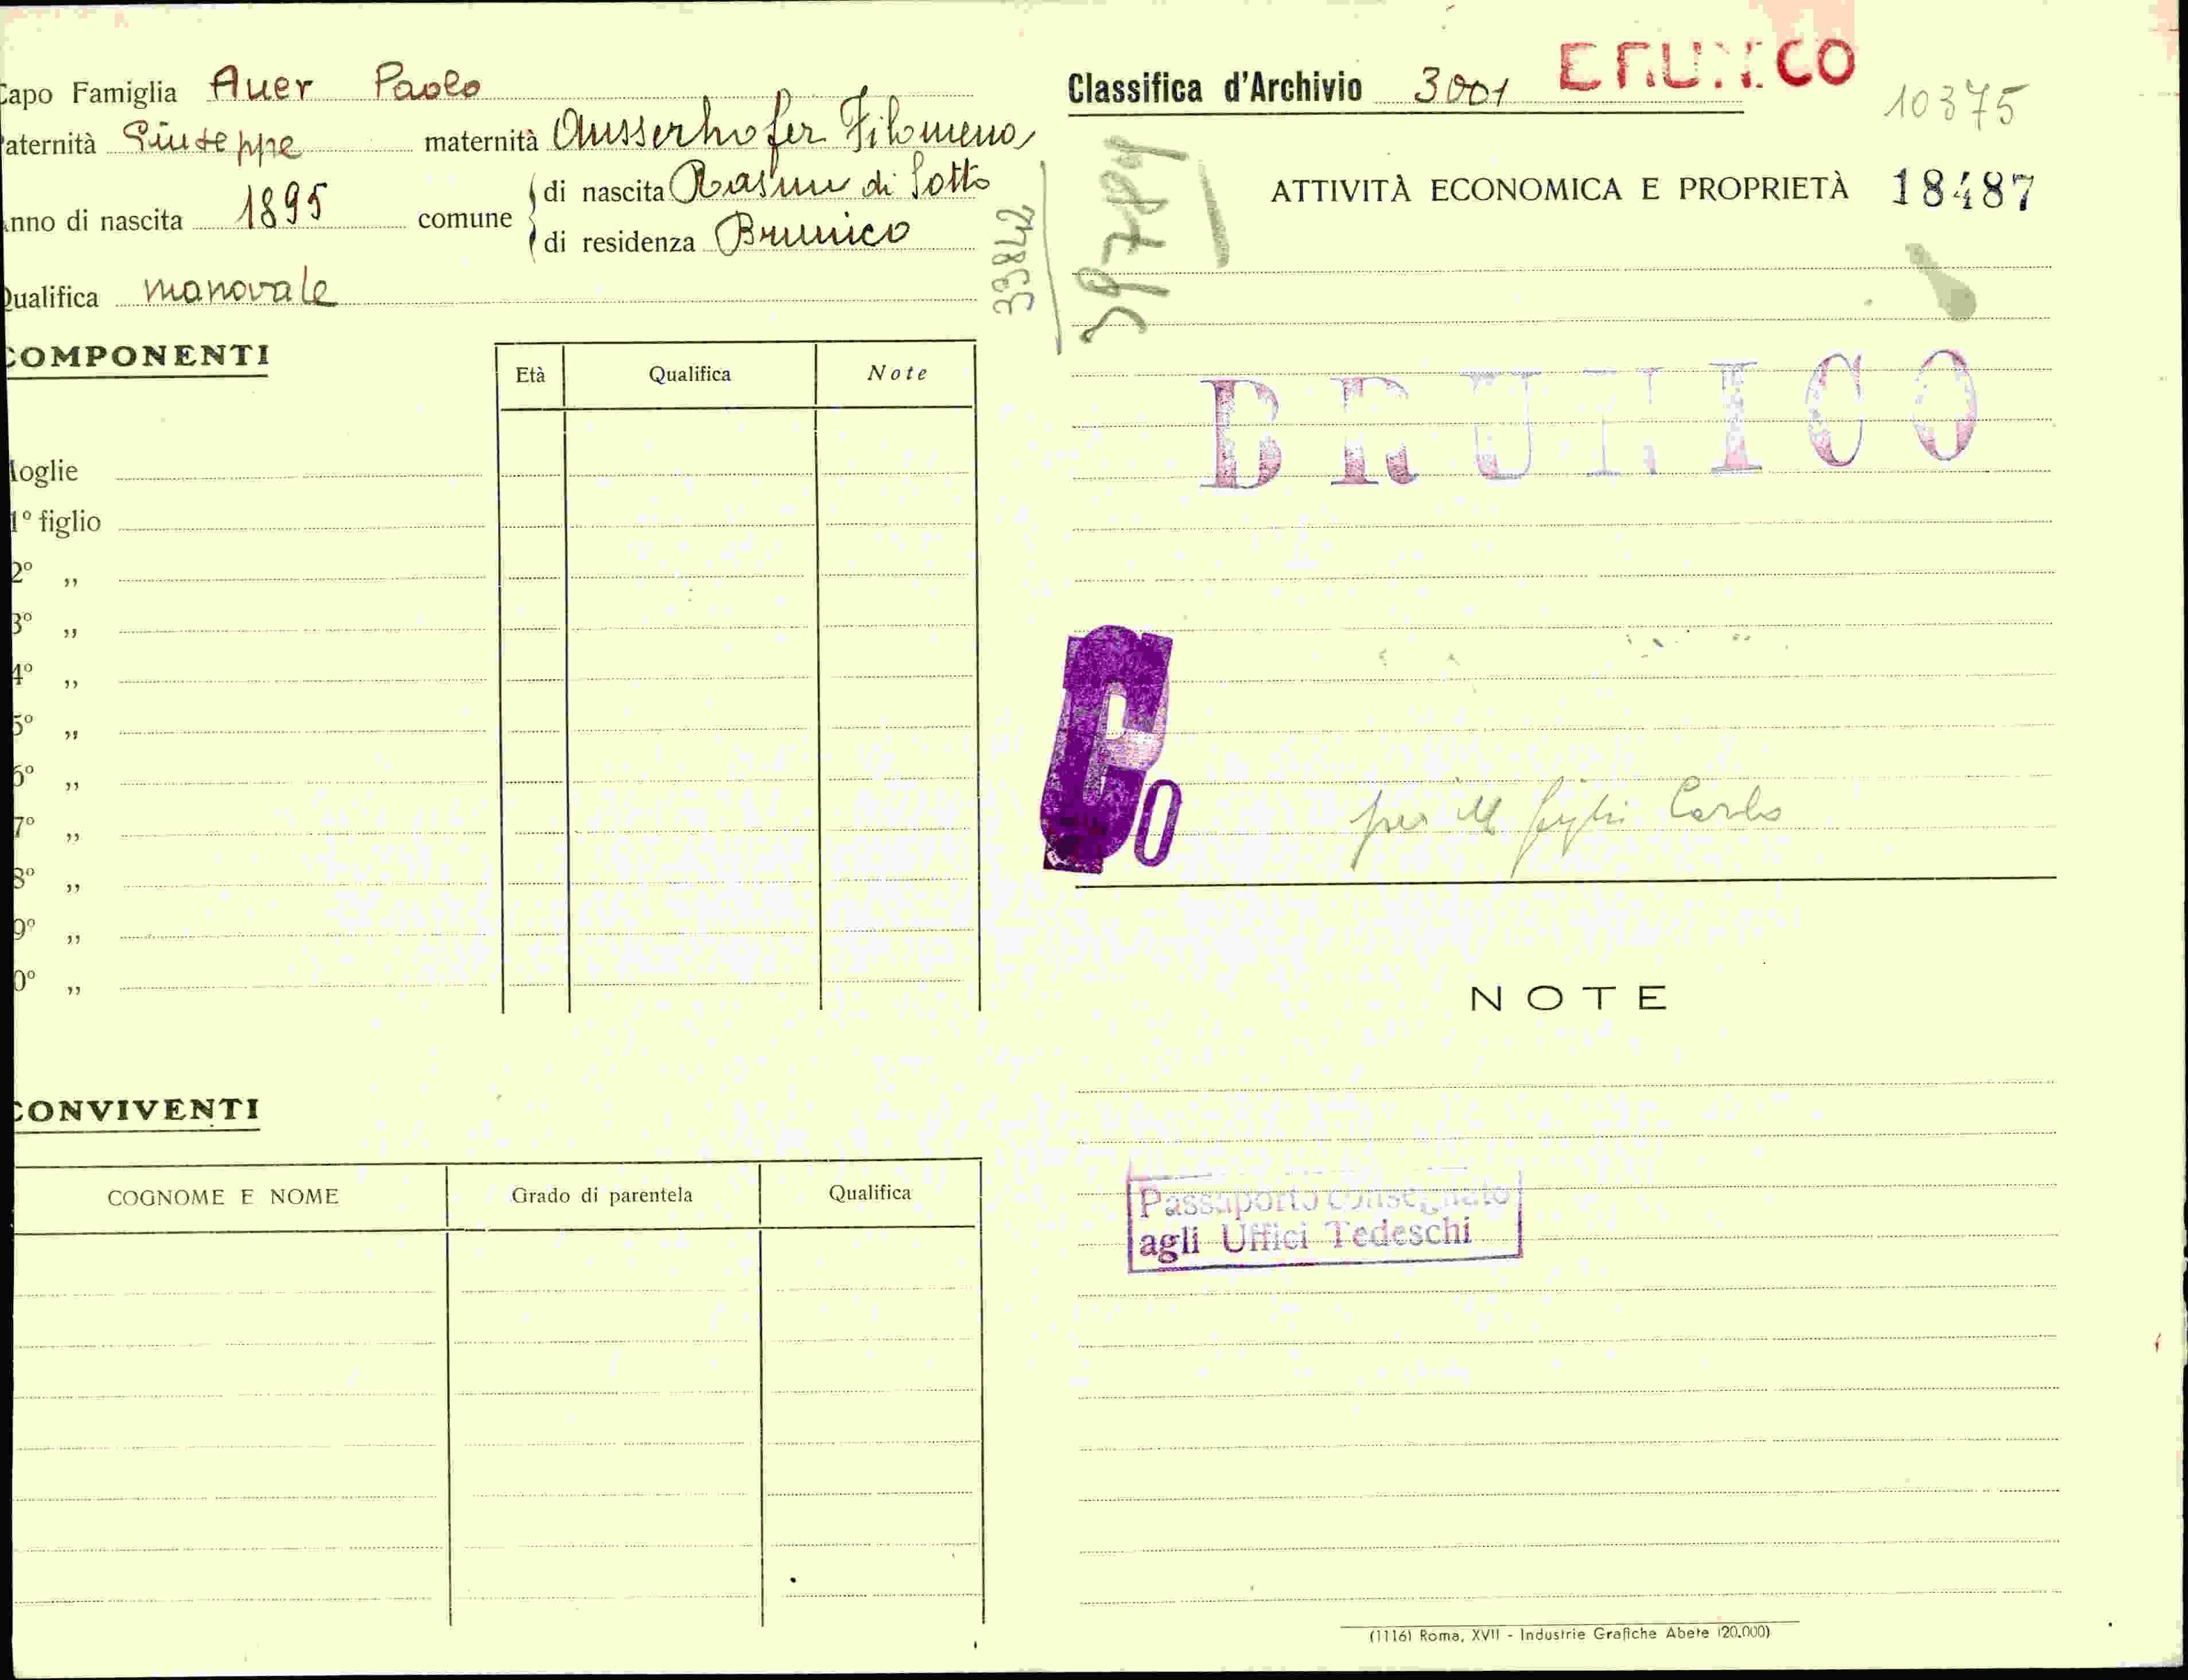 Capo Famiglia Auer Paolo
Paternità Giuseppe maternità Ausserhofer Filomena
Anno di nascita 1895 comune di nascita Rasun di Sotto
di residenza Brunico
Qualifica manovale
COMPONENTI
Età Qualifica Note
Moglie
1º figlio
2º „
3º „
4º „
5º „
6º „
7º „
8º „
9º „
10º „
CONVIVENTI
COGNOME E NOME Grado di parentela Qualifica
33842
Classifica d'Archivio 3001 BRUNICO
10375
ATTIVITÀ ECONOMICA E PROPRIETÀ 18487
BRUNICO
per il figlio Carlo
NOTE
Passaporto consegnato
agli Uffici Tedeschi
(1116) Roma, XVII - Industrie Grafiche Abete (20.000)